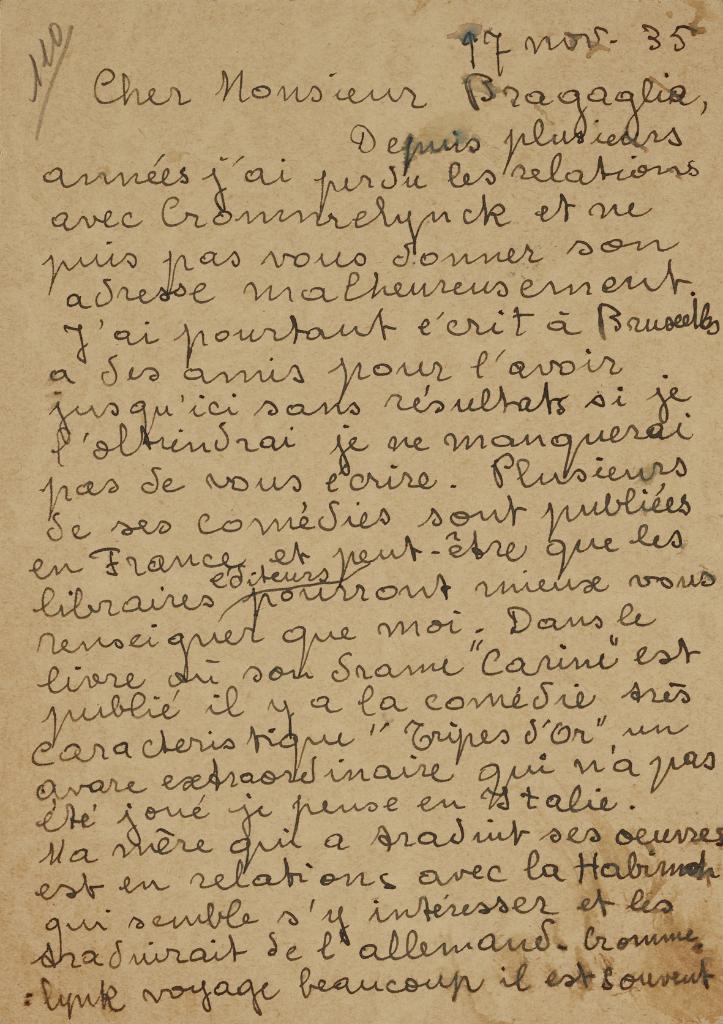 110
17 nov. 35
Cher Monsieur Bragaglia,
Depuis plusieurs
années j'ai perdu les relations
avec Crommelynck et ne
puis pas vous donner son
adresse malheureusement.
J'ai pourtant écrit à Bruxelles
a des amis pour l'avoir
jusqu'ici sans résultats si je
l'obtiendrai je ne manquerai
pas de vous écrire. Plusieurs
de ses comédies sont publiées
en France et peut-être que les
editeurs
libraires pourront mieux vous
renseigner que moi. Dans le
livre où son drame "Carine" est
publié il y a la comédie très
caracteristique "Tripes d'Or" un
avare extraordinaire qui n'a pas
été joué je pense en Italie.
Ma mère qui a traduit ses oeuvres
est en relations avec la Habimah
qui semble s'y intéresser et les
traduirait de l'allemand. Cromme-
lynk voyage beaucoup il est souvent